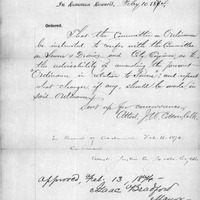 In Common Council, Feby 10. 1874.
Ordered.
That the Committee on Ordinances
be instructed to confer with the Committee
on Sewers & Drains, and City Engineer, as to
the advisability of amending the present
Ordinance in relation to Sewers; and report
what changes, if any, should be made in
said Ordinance.
Sent up for concurrence
Attest,
In Board of Aldermen Feb. 11. 1874.
Concurred
Attest,
Approved, Feb. 13. 1874
Isaac Bradford
Mayor